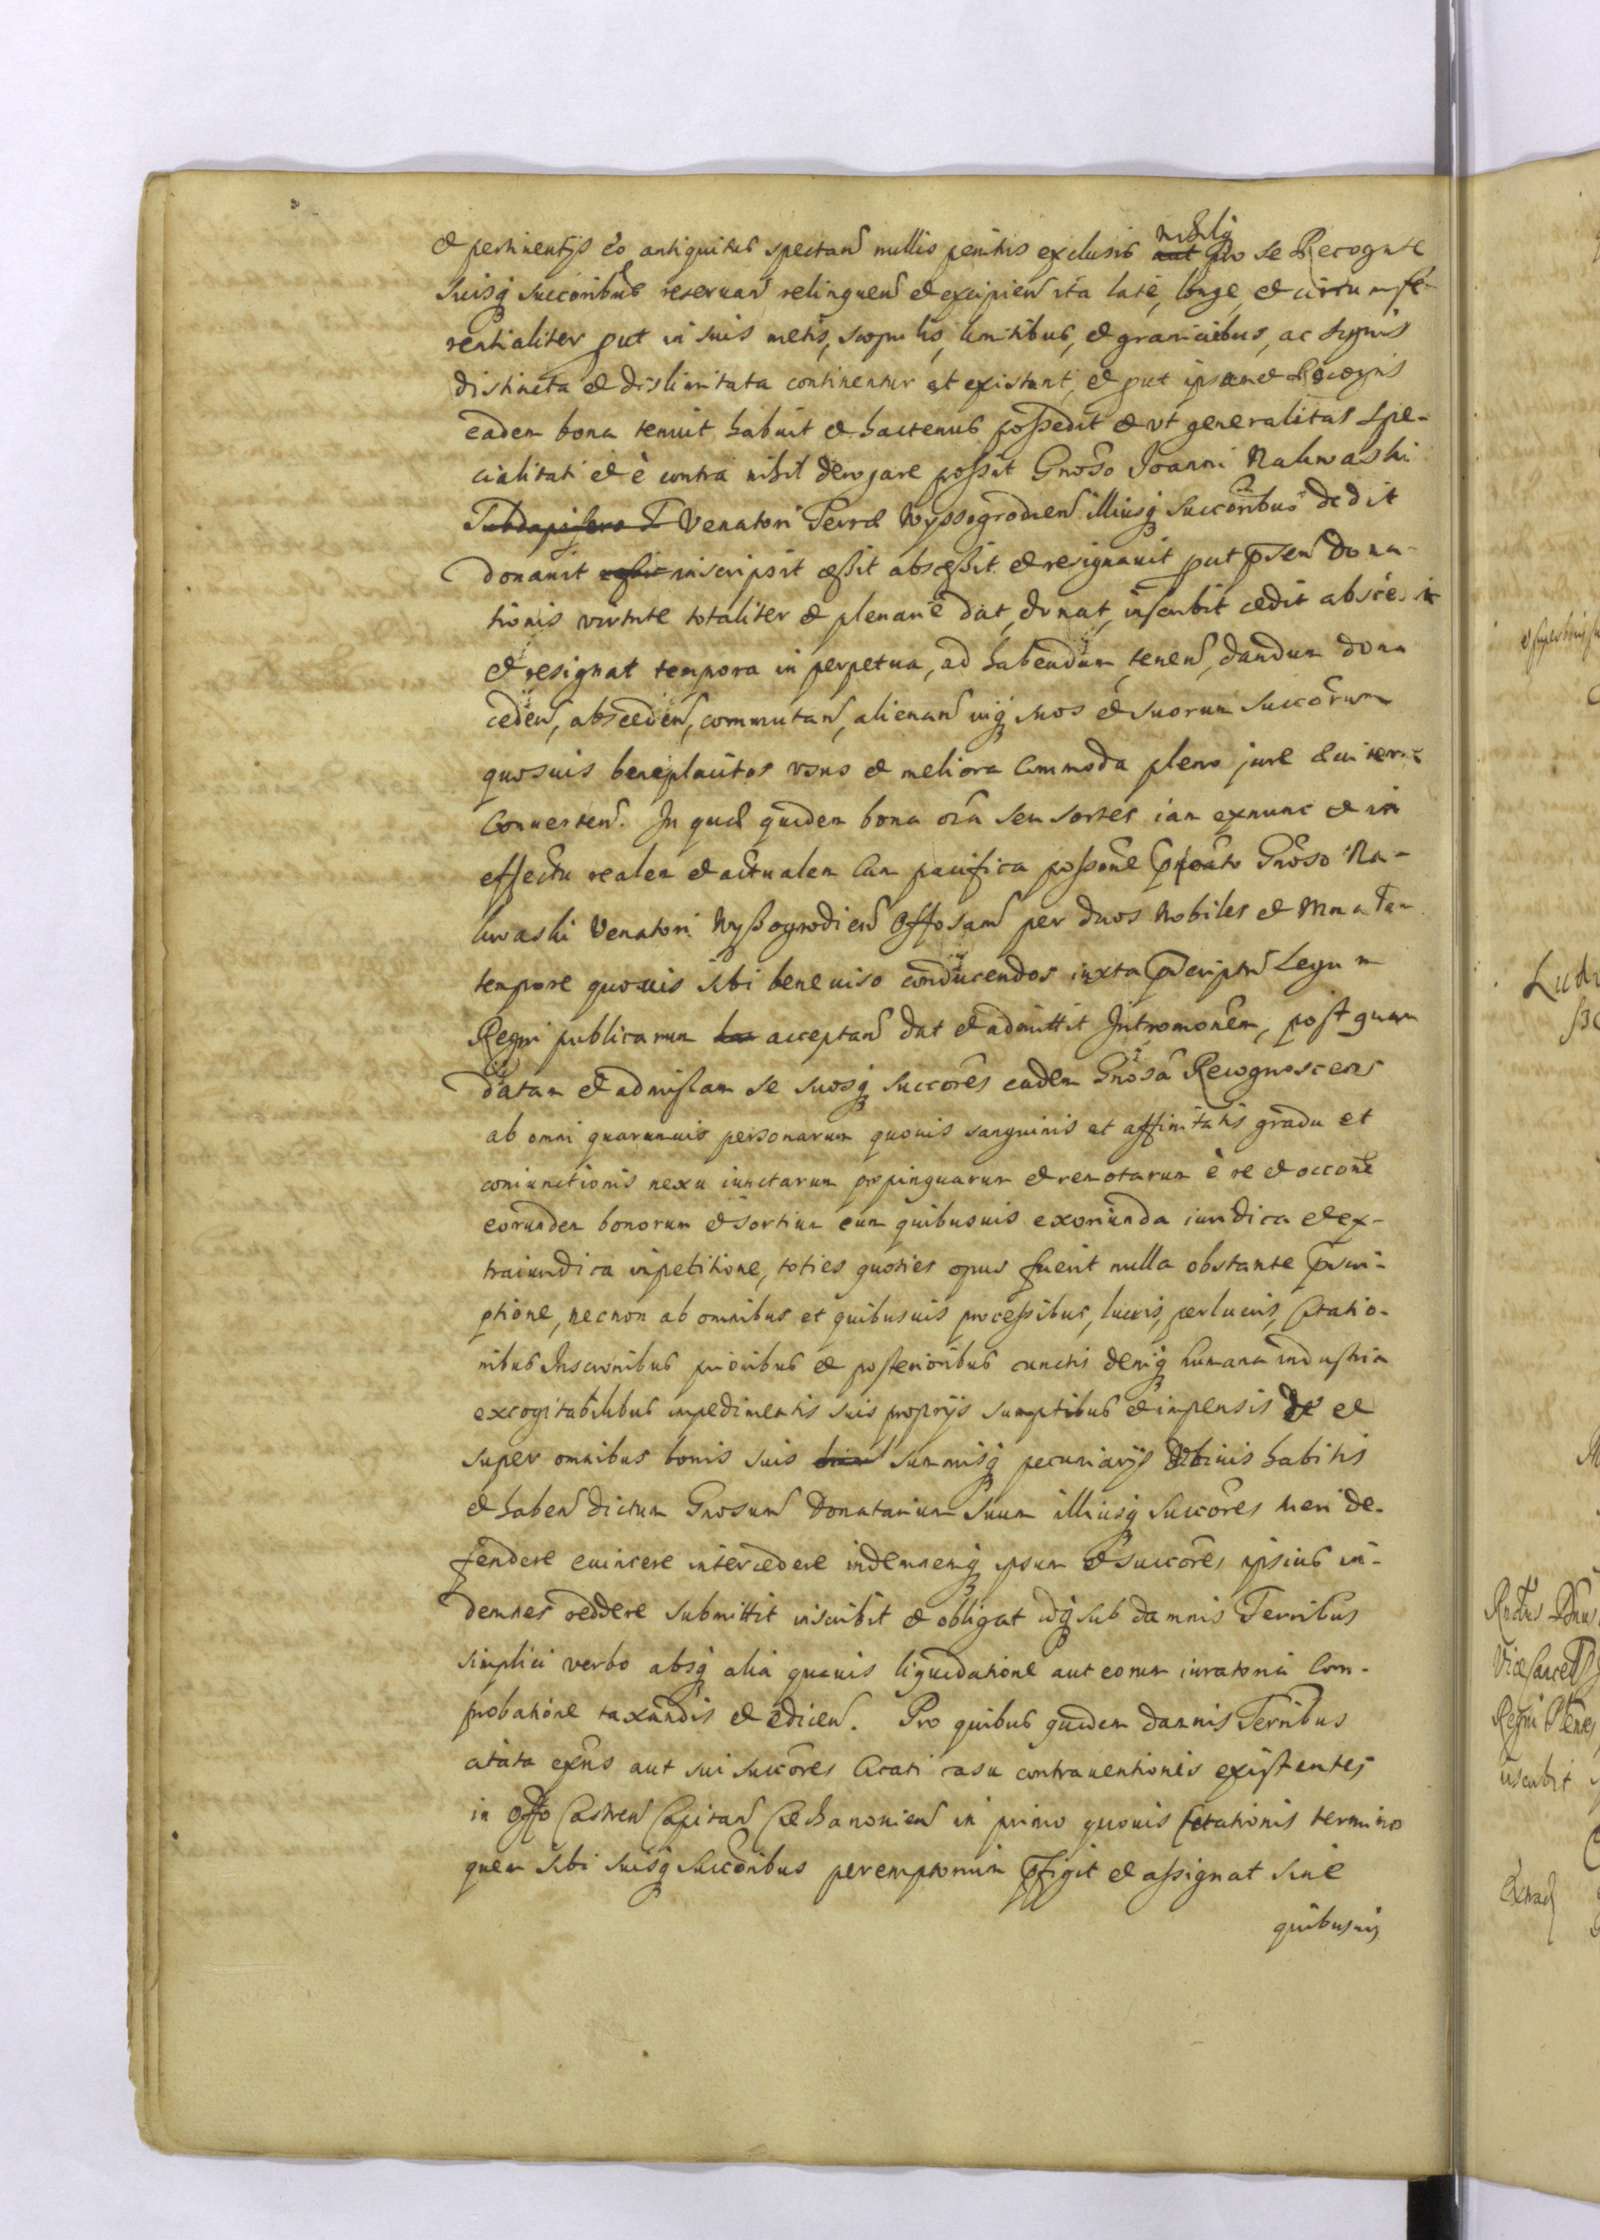 et pertinentijs eo antiquitus spectan nullis penitus exclusis nihilq
aut pro se Recognte
suisq succoribus reseruan relinquen et excipien ita late, longe, et circumfe-
rentialiter put in suis metis, scopulis, limitibus, et granicibus, ac signis
distincta et dislimitata continentur et existunt, et put ipsamet Recogns
eadem bona tenuit habuit et hactenus possedit et vt generalitas spe-
cialitati et è contra nihil derogare possit Gnoso Joanni Nakwaski
Subdapifero T Venatori Terræ Wyssogrodien illiusq succoribus dedit
donauit inscripsit cessit abscessit et resignauit put psen dona-
tionis virtute totaliter et plenarie dat, donat, inscribit cedit abscedit
et resignat tempora in perpetua, ad habendum, tenen, dandum dona
ceden, absceden, commutan, alienan inq suos et suorum succorum
quosuis beneplacitos vsus et meliora commoda pleno jure
conuerten. In quæ quidem bona oia seu sortes iam exnunc et in
effectu realem et actualem cum pacifica possone Gnoso Na-
kwaski Venatori Wyssogrodien Offosam per duos Nobiles et Mnatem
tempore quouis sibi beneuiso conducendos iuxta pscriptu Legum
Regni publicarum acceptan dat et admittit Intromonem, post quam
datam et admissam se suosq succores eadem Gnosa Recognoscens
ab omni quarumuis personarum quouis sanguinis et affinitatis gradu et
coniunctionis nexu iunctarum propinquarum et remotarum è re et occone
eorundem bonorum et sortium cum quibusuis exoriunda iuridica et ex-
traiuridica inpetitione, toties quoties opus fuerit nulla obstante pscri-
ptione, necnon ab omnibus et quibusuis processibus, lucris, perlucris, Citatio-
nibus Inscronibus prioribus et posterioribus cunctis deniq humana industria
excogitabilibus inpedimentis suis proprijs sumptibus et impensis de et
super omnibus bonis suis summisq pecuniarijs vbiuis habitis
et haben dictum Gnosum Donatarium suum illiusq succores tueri de-
fendere euincere intercedere indemnemq ipsum et succores ipsius in-
demnes reddere submittit inscribit et obligat idq sub damnis Terribus
simplici verbo absq alia quauis liquidatione aut eorum iuratoria Com-
probatione taxandis et edicen. Pro quibus quidem damnis Terribus
citata exns aut sui succores Citati casu contrauentionis existentes
in Offo Castren Capitan Ciechanouien in primo quouis Citationis termino
quem sibi suisq succoribus peremptorium pfigit et assignat sine
quibusuis